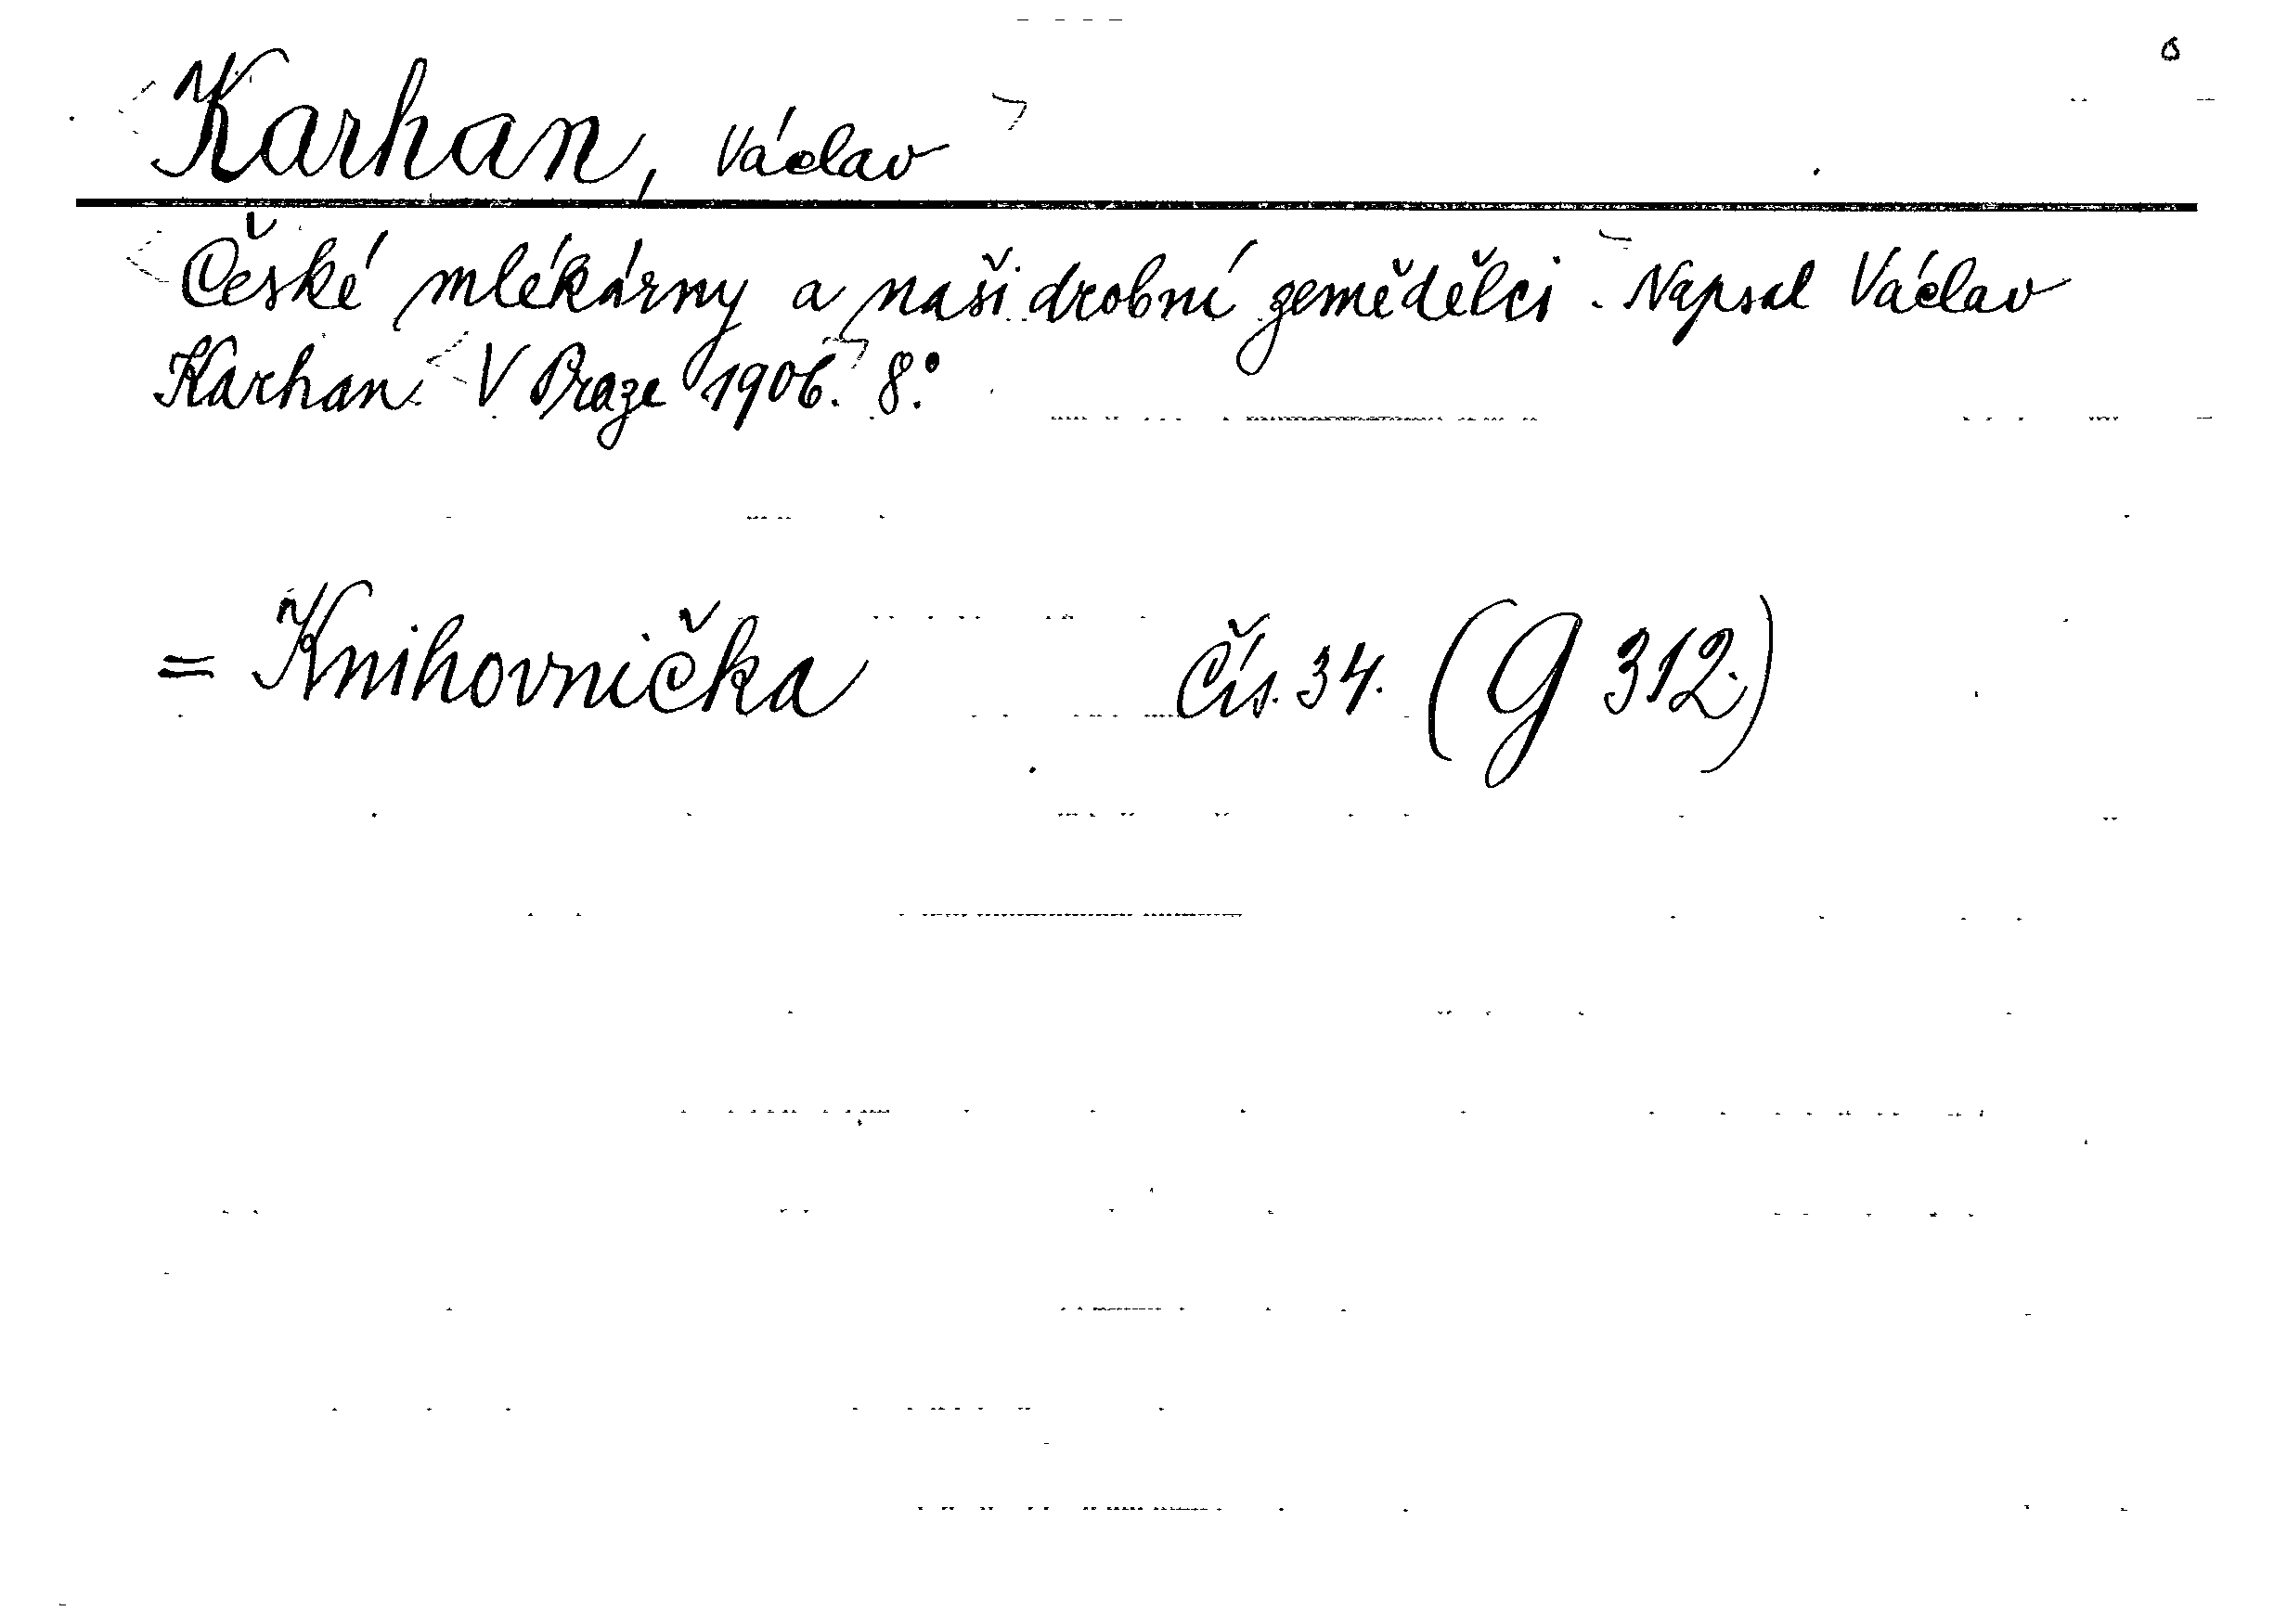 Karhan, Václav
České mlékárny a naši drobní zemědělci. Napsal Václav
Karhan. V Praze 1906. 8.°
= Knihovnička čís. 34. (G 312.)